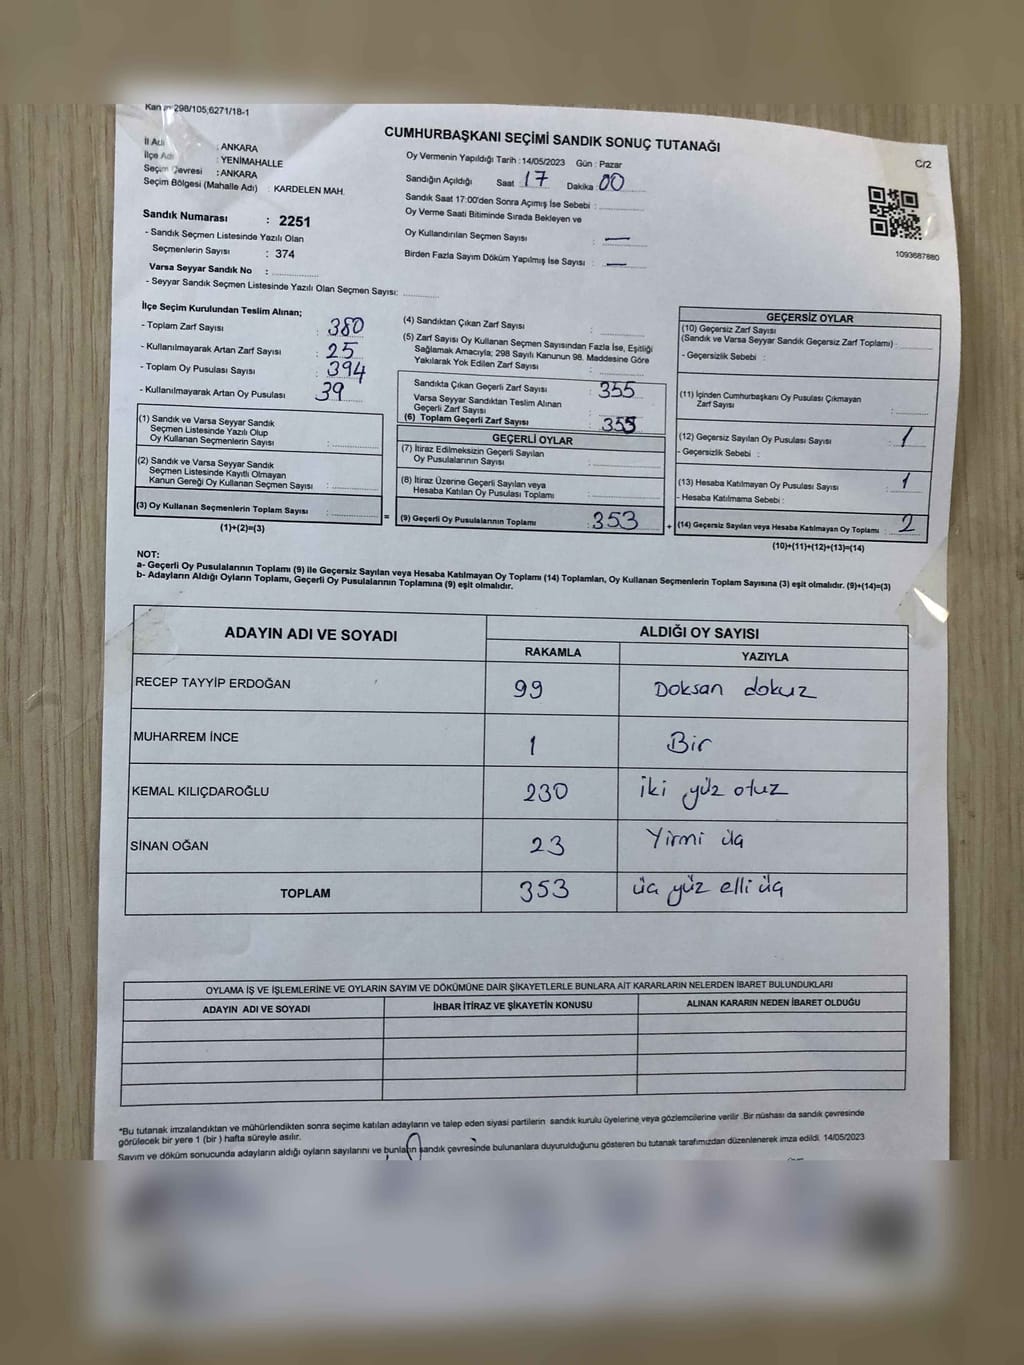 Kanun 298/105;6271/18-1
CUMHURBAŞKANI SEÇİMİ SANDIK SONUÇ TUTANAĞI
C/2
İl Adı : ANKARA
İlçe Adı : YENİMAHALLE
Seçim Çevresi : ANKARA
Seçim Bölgesi (Mahalle Adı) : KARDELEN MAH.
Sandık Numarası : 2251
- Sandık Seçmen Listesinde Yazılı Olan
Seçmenlerin Sayısı : 374
Varsa Seyyar Sandık No :
- Seyyar Sandık Seçmen Listesinde Yazılı Olan Seçmen Sayısı:
Oy Vermenin Yapıldığı Tarih : 14/05/2023 Gün : Pazar
Sandığın Açıldığı Saat 17 Dakika 00
Sandık Saat 17:00'den Sonra Açımış İse Sebebi :
Oy Verme Saati Bitiminde Sırada Bekleyen ve
Oy Kullandırılan Seçmen Sayısı : —
Birden Fazla Sayım Döküm Yapılmış İse Sayısı : —
1093687880
İlçe Seçim Kurulundan Teslim Alınan;
- Toplam Zarf Sayısı : 380
- Kullanılmayarak Artan Zarf Sayısı : 25
- Toplam Oy Pusulası Sayısı : 394
- Kullanılmayarak Artan Oy Pusulası : 39
(1) Sandık ve Varsa Seyyar Sandık
Seçmen Listesinde Yazılı Olup
Oy Kullanan Seçmenlerin Sayısı :
(2) Sandık ve Varsa Seyyar Sandık
Seçmen Listesinde Kayıtlı Olmayan
Kanun Gereği Oy Kullanan Seçmen Sayısı :
(3) Oy Kullanan Seçmenlerin Toplam Sayısı :
(1)+(2)=(3)
(4) Sandıktan Çıkan Zarf Sayısı :
(5) Zarf Sayısı Oy Kullanan Seçmen Sayısından Fazla İse, Eşitliği
Sağlamak Amacıyla; 298 Sayılı Kanunun 98. Maddesine Göre
Yakılarak Yok Edilen Zarf Sayısı :
Sandıkta Çıkan Geçerli Zarf Sayısı : 355
Varsa Seyyar Sandıktan Teslim Alınan
Geçerli Zarf Sayısı :
(6) Toplam Geçerli Zarf Sayısı : 355
GEÇERLİ OYLAR
(7) İtiraz Edilmeksizin Geçerli Sayılan
Oy Pusulalarının Sayısı :
(8) İtiraz Üzerine Geçerli Sayılan veya
Hesaba Katılan Oy Pusulası Toplamı :
= (9) Geçerli Oy Pusulalarının Toplamı : 353 +
GEÇERSİZ OYLAR
(10) Geçersiz Zarf Sayısı
(Sandık ve Varsa Seyyar Sandık Geçersiz Zarf Toplamı) :
- Geçersizlik Sebebi :
(11) İçinden Cumhurbaşkanı Oy Pusulası Çıkmayan
Zarf Sayısı :
(12) Geçersiz Sayılan Oy Pusulası Sayısı : 1
- Geçersizlik Sebebi :
(13) Hesaba Katılmayan Oy Pusulası Sayısı : 1
- Hesaba Katılmama Sebebi :
(14) Geçersiz Sayılan veya Hesaba Katılmayan Oy Toplamı : 2
(10)+(11)+(12)+(13)=(14)
NOT:
a- Geçerli Oy Pusulalarının Toplamı (9) ile Geçersiz Sayılan veya Hesaba Katılmayan Oy Toplamı (14) Toplamları, Oy Kullanan Seçmenlerin Toplam Sayısına (3) eşit olmalıdır. (9)+(14)=(3)
b- Adayların Aldığı Oyların Toplamı, Geçerli Oy Pusulalarının Toplamına (9) eşit olmalıdır.
ADAYIN ADI VE SOYADI ALDIĞI OY SAYISI
RAKAMLA YAZIYLA
RECEP TAYYİP ERDOĞAN 99 Doksan dokuz
MUHARREM İNCE 1 Bir
KEMAL KILIÇDAROĞLU 230 iki yüz otuz
SİNAN OĞAN 23 Yirmi üç
TOPLAM 353 üç yüz elli üç
OYLAMA İŞ VE İŞLEMLERİNE VE OYLARIN SAYIM VE DÖKÜMÜNE DAİR ŞİKAYETLERLE BUNLARA AİT KARARLARIN NELERDEN İBARET BULUNDUKLARI
ADAYIN ADI VE SOYADI İHBAR İTİRAZ VE ŞİKAYETİN KONUSU ALINAN KARARIN NEDEN İBARET OLDUĞU
*Bu tutanak imzalandıktan ve mühürlendikten sonra seçime katılan adayların ve talep eden siyasi partilerin sandık kurulu üyelerine veya gözlemcilerine verilir. Bir nüshası da sandık çevresinde
görülecek bir yere 1 (bir) hafta süreyle asılır.
Sayım ve döküm sonucunda adayların aldığı oyların sayılarını ve bunların sandık çevresinde bulunanlara duyurulduğunu gösteren bu tutanak tarafımızdan düzenlenerek imza edildi. 14/05/2023